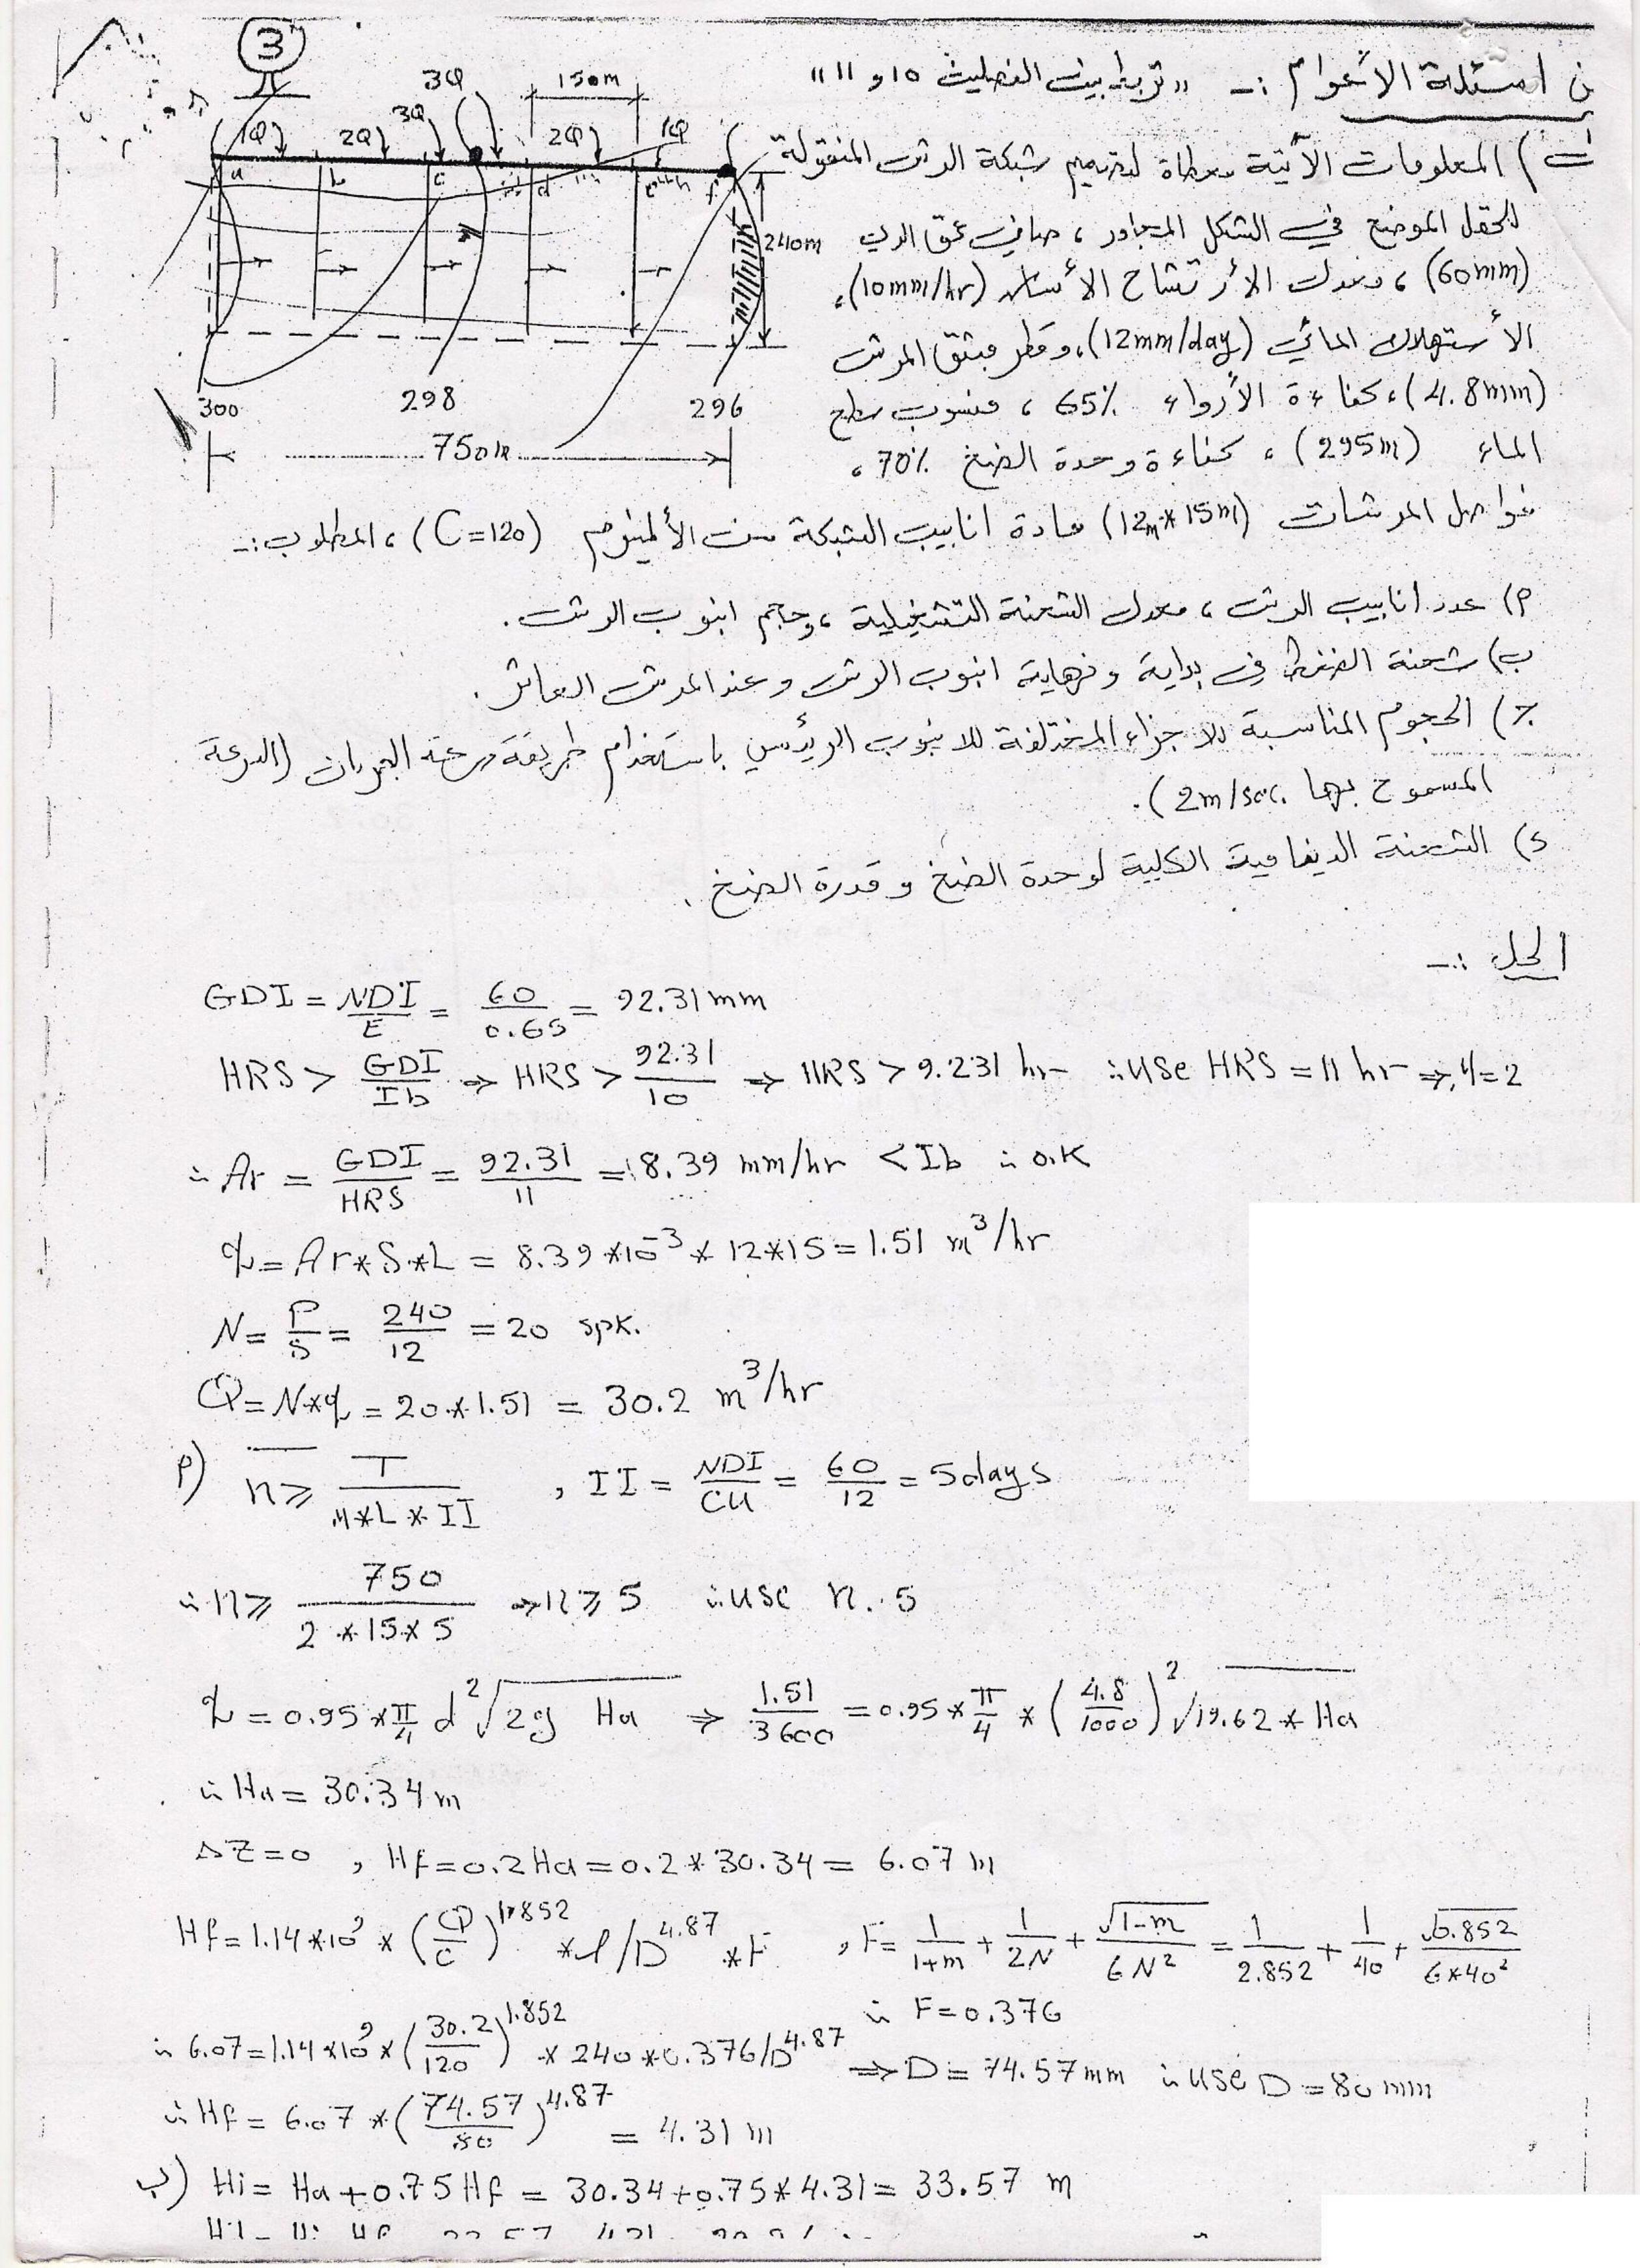 3
من اسئلة الأعوام :- "تربط بين الفصلين 10 و 11"
3Q
150m
1Q 2Q 3Q 2Q 1Q
a b c d e f
240m
300 298 296
750m
المعلومات الآتية معطاة لتصميم شبكة الرش المنقولة
للحقل الموضح في الشكل المجاور ، صافي عمق الري
(60mm) ، معدل الأرتشاح الأساس (10mm/hr) ،
الأستهلاك المائي (12mm/day) ، وقطر مبثق المرش
(4.8mm) ، كفاءة الأرواء 65% ، منسوب سطح
الماء (295m) ، كفاءة وحدة الضخ 70% ،
فواصل المرشات (12m*15m) مادة انابيب الشبكة من الألمنيوم (C=120) ، المطلوب :-
م) عدد انابيب الرش ، معدل الشحنة التشغيلية ، وحجم انبوب الرش .
ب) شحنة الضغط في بداية ونهاية انبوب الرش وعند المرش العاشر .
ج) الحجوم المناسبة للاجزاء المختلفة للانبوب الرئيسي باستخدام طريقة سرعة الجريان (السرعة
المسموح بها 2m/sec).
د) الشحنة الدينامية الكلية لوحدة الضخ وقدرة الضخ .
الحل :-
GDI = NDI/E = 60/0.65 = 92.31 mm
HRS > GDI/Ib ⇒ HRS > 92.31/10 ⇒ HRS > 9.231 hr ∴ use HRS = 11 hr ⇒ M=2
∴ Ar = GDI/HRS = 92.31/11 = 8.39 mm/hr < Ib ∴ o.K
q = Ar*S*L = 8.39*10^-3 * 12*15 = 1.51 m^3/hr
N = P/S = 240/12 = 20 spk.
Q = N*q = 20*1.51 = 30.2 m^3/hr
م) n ≥ T/(M*L*II) , II = NDI/CU = 60/12 = 5 days
∴ n ≥ 750/(2*15*5) ⇒ n ≥ 5 ∴ use n. 5
q = 0.95*π/4 d^2 √(2g Ha) ⇒ 1.51/3600 = 0.95*π/4 * (4.8/1000)^2 √(19.62*Ha)
∴ Ha = 30.34 m
ΔZ = 0 , Hf = 0.2Ha = 0.2*30.34 = 6.07 m
Hf = 1.14*10^9 * (Q/C)^1.852 * l/D^4.87 * F , F = 1/(1+m) + 1/(2N) + √(1-m)/(6N^2) = 1/2.852 + 1/40 + √0.852/(6*40^2)
∴ F = 0.376
∴ 6.07 = 1.14*10^9 * (30.2/120)^1.852 * 240*0.376/D^4.87 ⇒ D = 74.57mm ∴ use D = 80 mm
∴ Hf = 6.07 * (74.57/80)^4.87 = 4.31 m
ب) Hi = Ha + 0.75Hf = 30.34 + 0.75*4.31 = 33.57 m